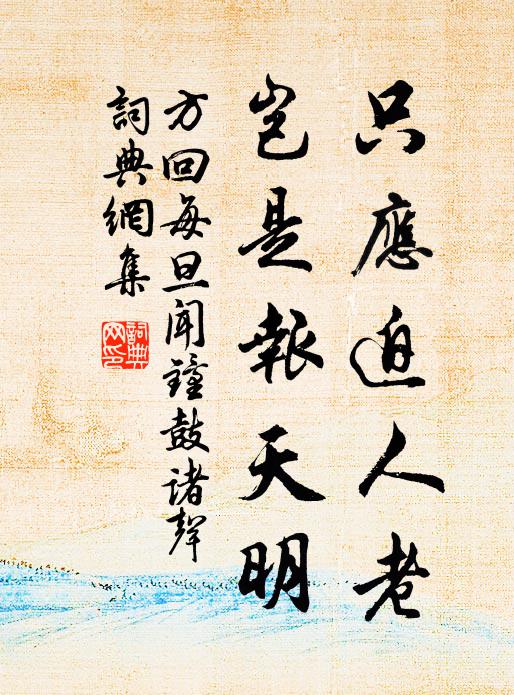 只應迫人老
豈是報天明
方回每旦聞鐘鼓諸聲
詞典網集
詞典網印